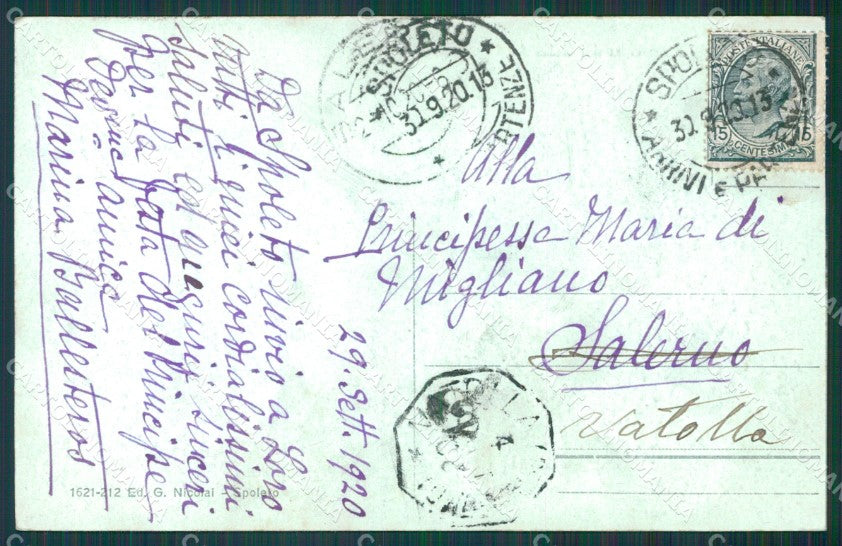 Da Spoleto invio a Loro
tutti i miei cordialissimi
saluti ed auguri sinceri
per la festa del Principe
Dev.ma amica
Marina Ballesteros
29. Sett. 1920
Alla
Principessa Maria di
Migliano
Salerno
Vatolla
SPOLETO
30.9.20.13
SPOLETO
30.9.20.13
ARRIVI E PARTENZE
POSTE ITALIANE
15 CENTESIMI 15
1621-212 Ed. G. Nicolai - Spoleto
CARTOLINOMANIA